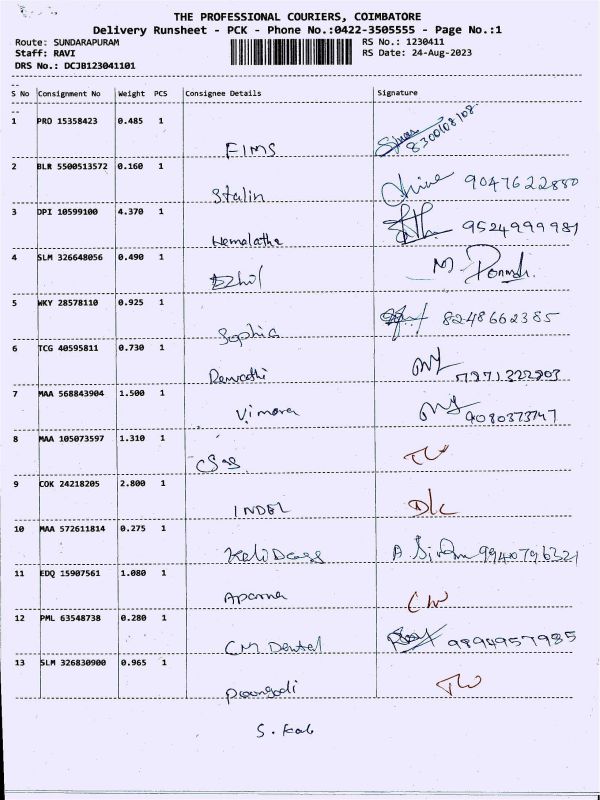 THE PROFESSIONAL COURIERS, COIMBATORE
Delivery Runsheet - PCK - Phone No.:0422-3505555 - Page No.:1
Route: SUNDARAPURAM RS No.: 1230411
Staff: RAVI RS Date: 24-Aug-2023
DRS No.: DCJB123041101
S No Consignment No Weight PCS Consignee Details Signature
1 PRO 15358423 0.485 1
FIMS 8300108108
2 BLR 5500513572 0.160 1
Stalin 9047622880
3 DPI 10599100 4.370 1
Hemalatha 9524999981
4 SLM 326648056 0.490 1
Ezhil M.
5 WKY 28578110 0.925 1
Sophia 8248662385
6 TCG 40595811 0.730 1
7 MAA 568843904 1.500 1
9080373747
8 MAA 105073597 1.310 1
9 COK 24218205 2.800 1
INDEL
10 MAA 572611814 0.275 1
A 9940796321
11 EDQ 15907561 1.080 1
Aparna
12 PML 63548738 0.280 1
CM Dental 9894957985
13 SLM 326830900 0.965 1
Poongodi
S.